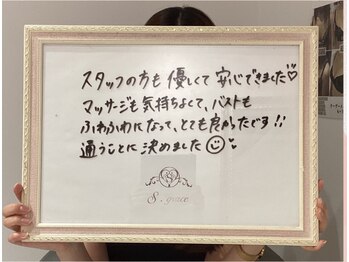 スタッフの方も優しくて安心できました♡
マッサージも気持ちよくて、バストも
ふわふわになって、とても良かったです!!
通うことに決めました☺♡
S.grace